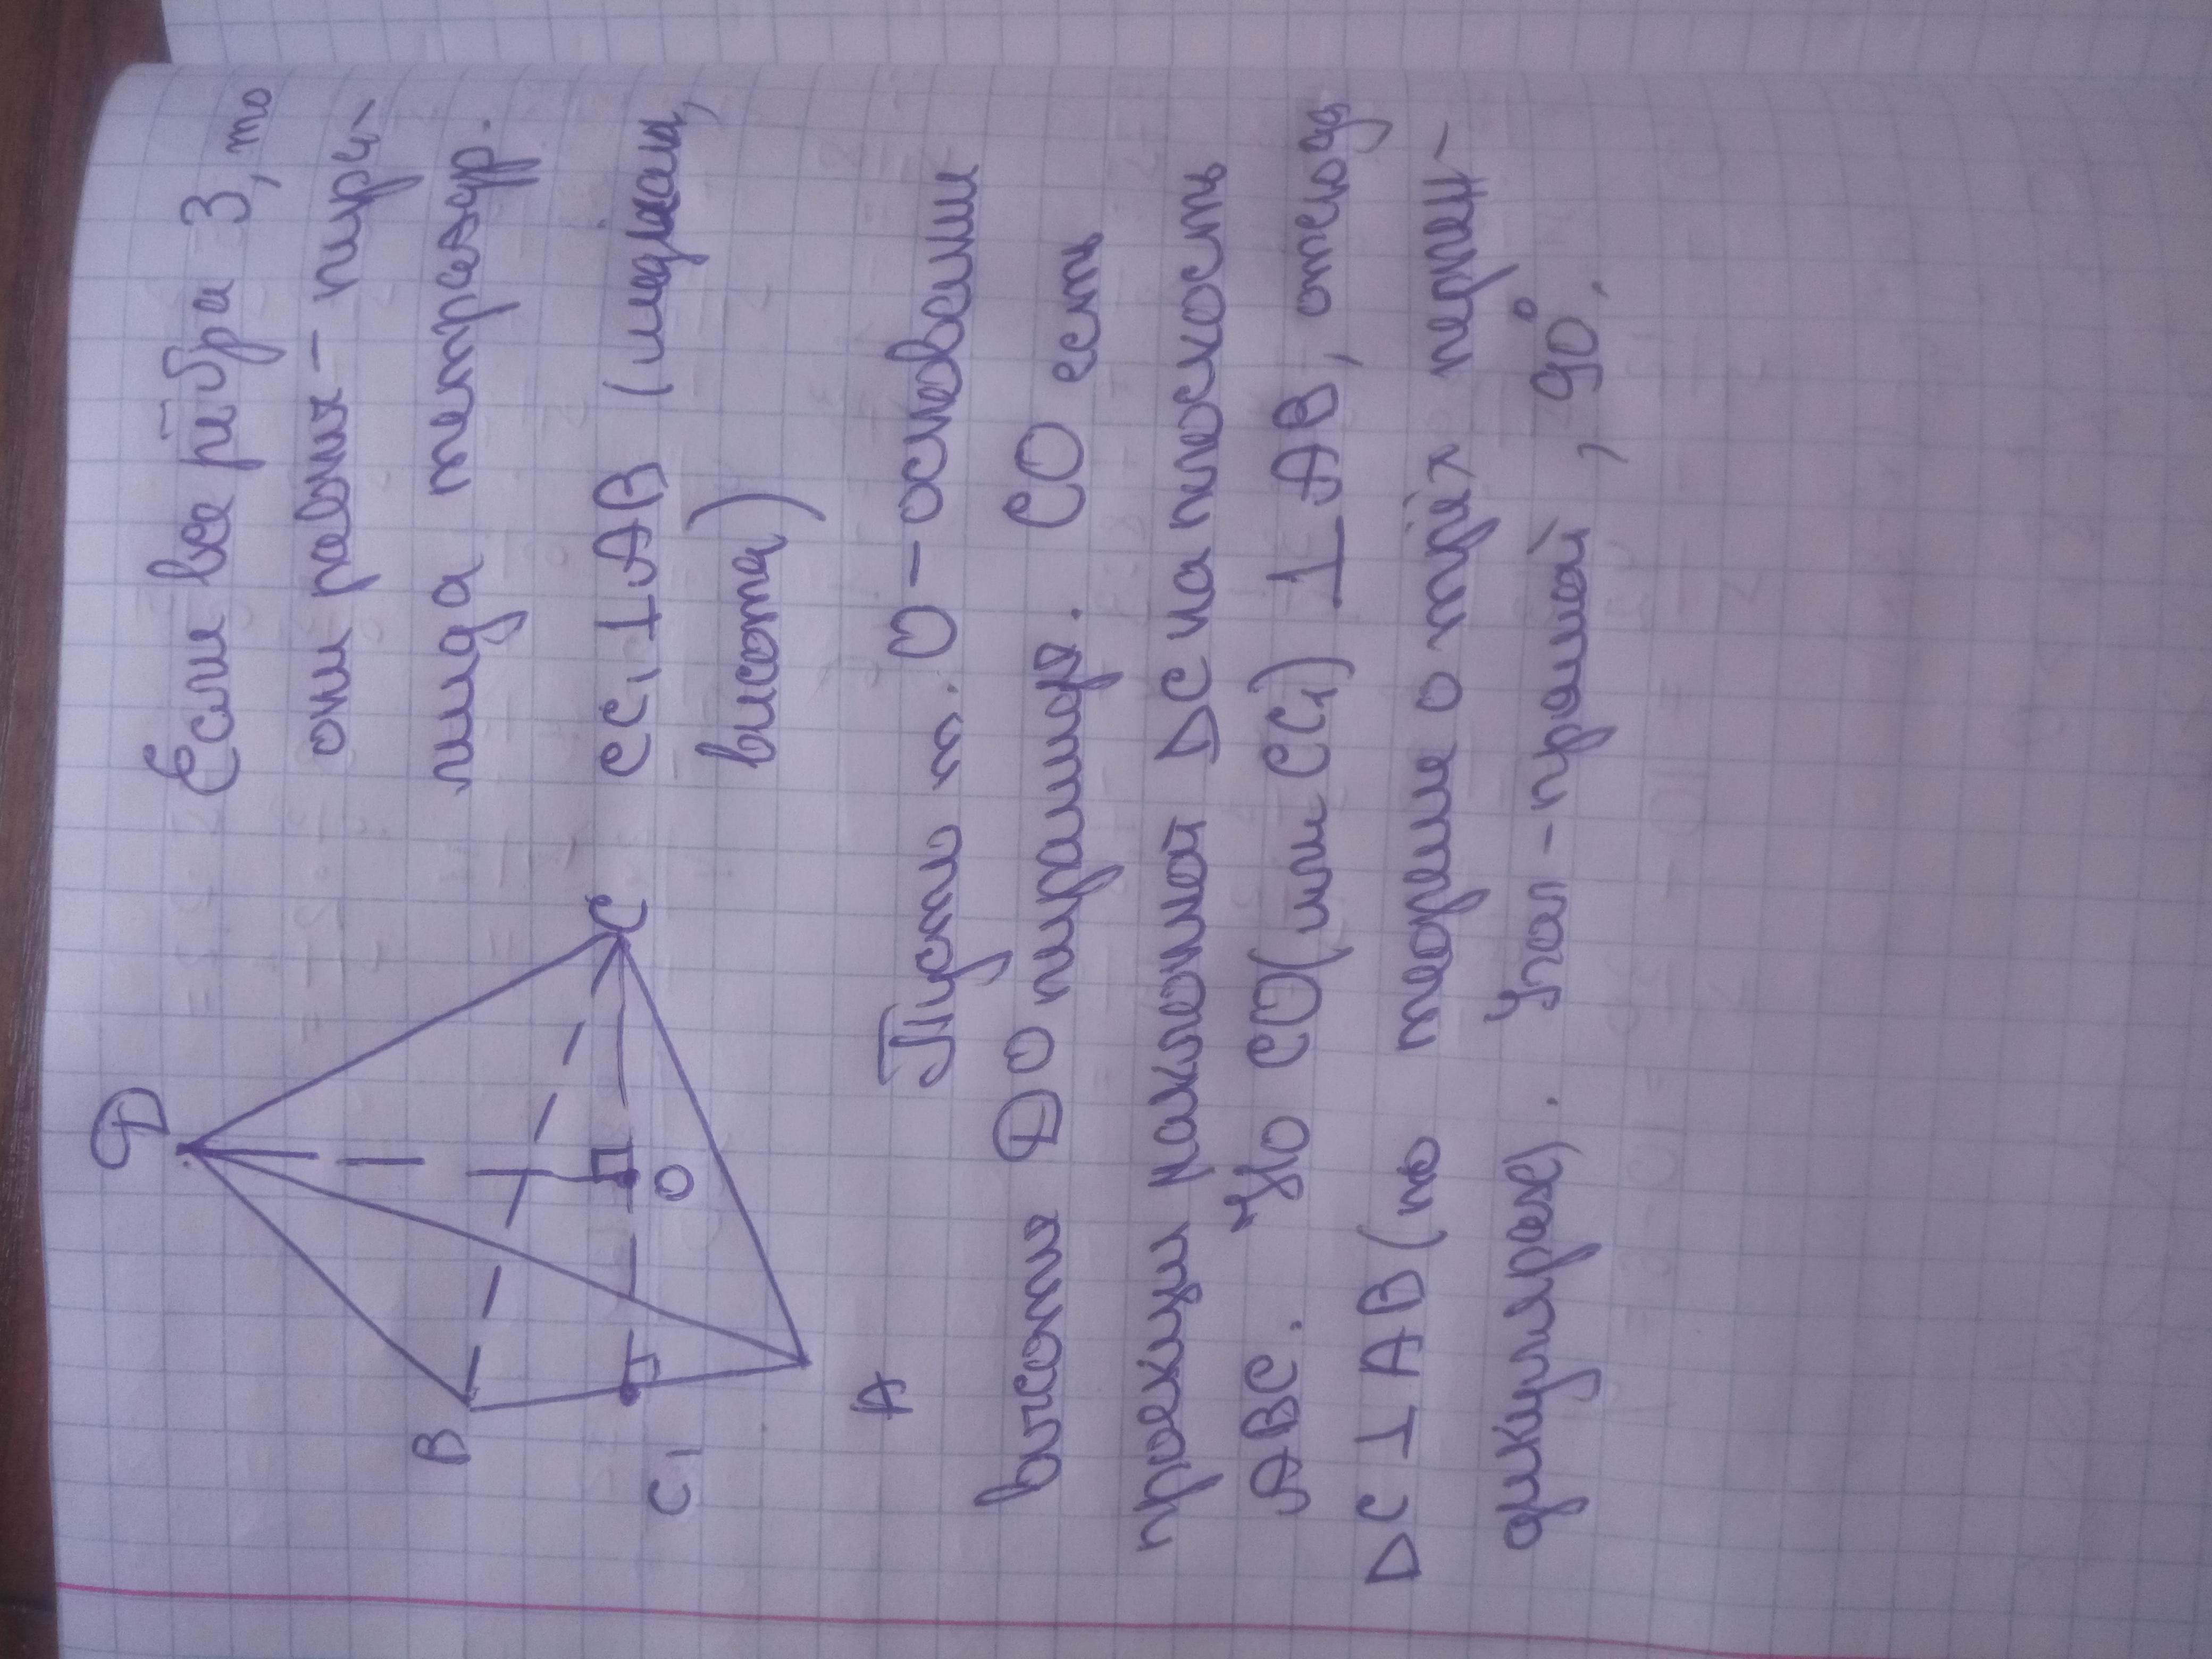 Если все рёбра 3, то
они равны - пира-
мида тетраэдр.
CC₁⊥AB (медиана,
висота)
D
B
C
O
C₁
A
Пусть т. O - основании
высоты DO пирамиды. CO есть
проекции наклонной DC на плоскость
ABC. Но CO (или CC₁) ⊥ AB, отсюда
DC ⊥ AB (по теореме о трёх перпен-
дикулярах). Угол - прямой, 90°.